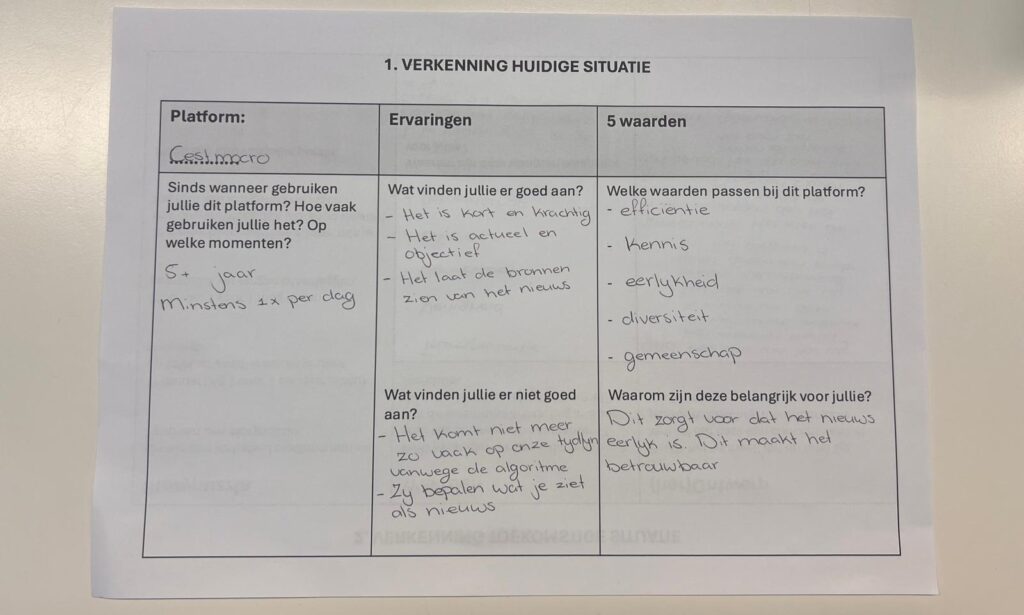 1. VERKENNING HUIDIGE SITUATIE
Platform:
Cestmocro
Sinds wanneer gebruiken
jullie dit platform? Hoe vaak
gebruiken jullie het? Op
welke momenten?
5+ jaar
Minstens 1x per dag
Ervaringen
Wat vinden jullie er goed aan?
- Het is kort en krachtig
- Het is actueel en
objectief
- Het laat de bronnen
zien van het nieuws
Wat vinden jullie er niet goed
aan?
- Het komt niet meer
zo vaak op onze tydlyn
vanwege de algoritme
- Zy bepalen wat je ziet
als nieuws
5 waarden
Welke waarden passen bij dit platform?
- efficiëntie
- kennis
- eerlykheid
- diversiteit
- gemeenschap
Waarom zijn deze belangrijk voor jullie?
Dit zorgt voor dat het nieuws
eerlyk is. Dit maakt het
betrouwbaar
2. VERKENNING TOEKOMSTIGE SITUATIE
(her)Ontwerp